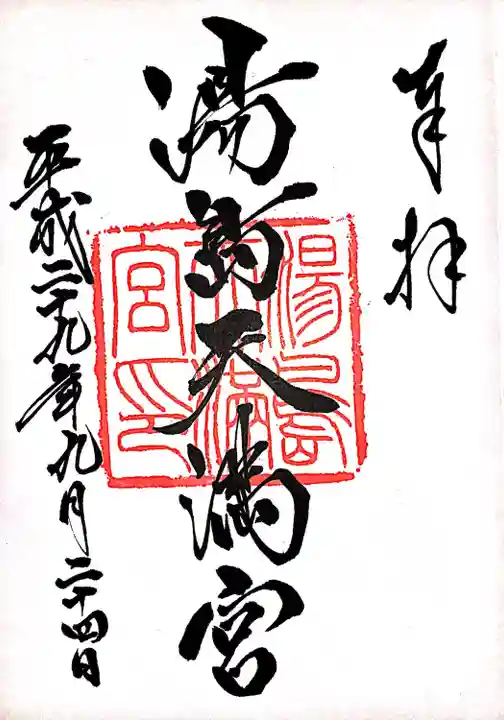 奉拝
湯島天満宮
湯島天満宮印
平成二十九年九月二十四日